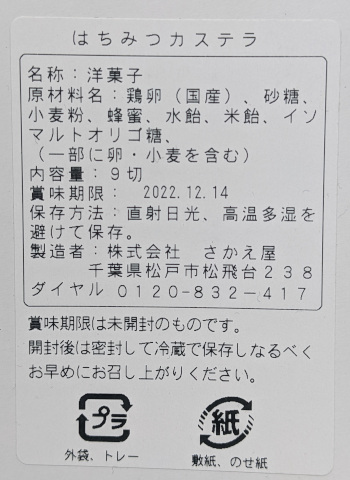 はちみつカステラ
名称：洋菓子
原材料名：鶏卵（国産）、砂糖、
小麦粉、蜂蜜、水飴、米飴、イソ
マルトオリゴ糖、
（一部に卵・小麦を含む）
内容量：９切
賞味期限： 2022.12.14
保存方法：直射日光、高温多湿を
避けて保存。
製造者：株式会社　さかえ屋
千葉県松戸市松飛台２３８
ダイヤル ０１２０-８３２-４１７
賞味期限は未開封のものです。
開封後は密封して冷蔵で保存しなるべく
お早めにお召し上がりください。
プラ
紙
外袋、トレー
敷紙、のせ紙